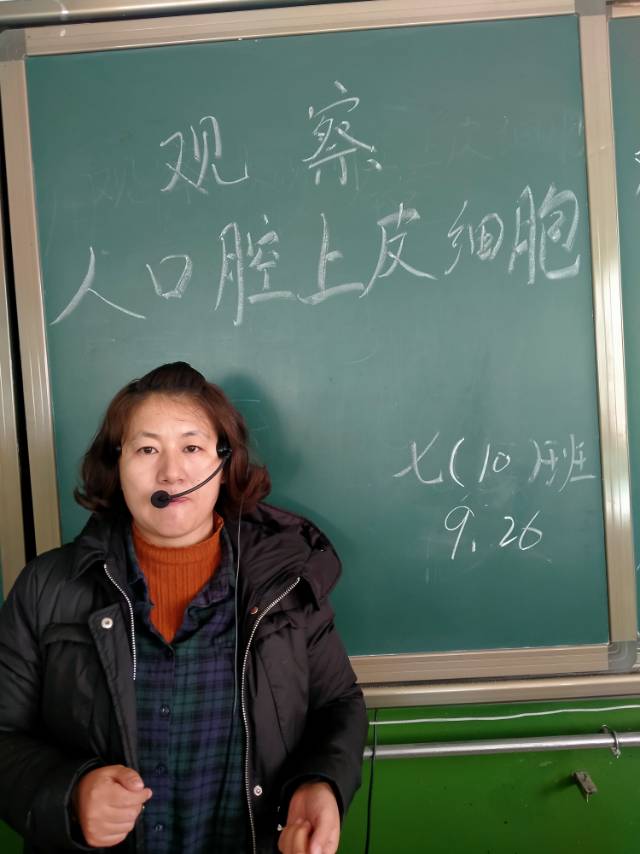 观察
人口腔上皮细胞
七(10)班
9.26